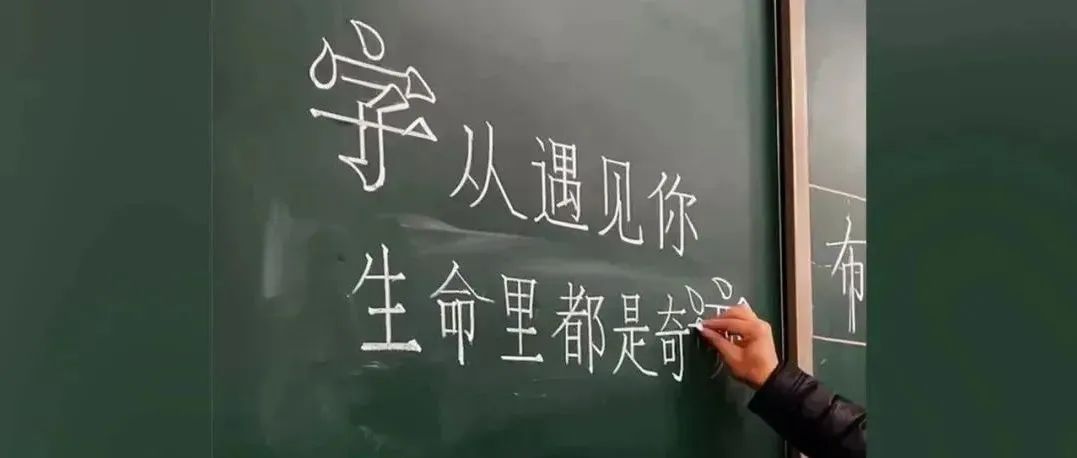 字从遇见你
生命里都是奇
布